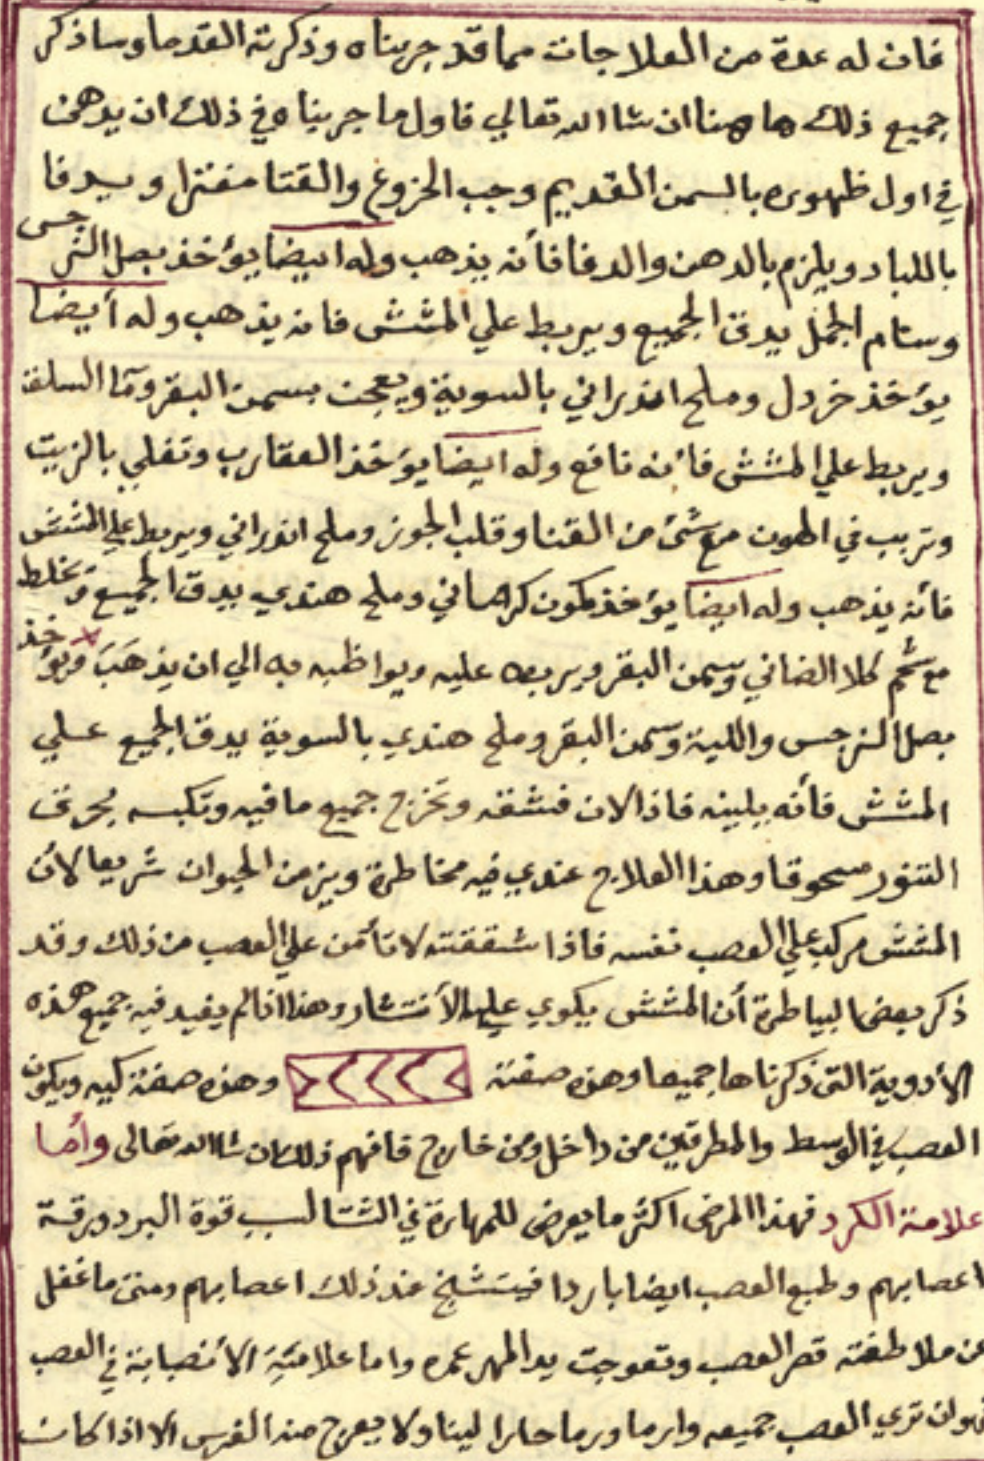 فان له عدة من العلاجات مما قد جربناه وذكرته القدما وساذكر
جميع ذلك هاهنا ان شا الله تعالي فاول ما جربناه في ذلك ان يدهن
في اول ظهوره بالسمن القديم وحب الخزوع والقتا مفترا ويدفا
باللباد ويلزم بالدهن والدفا فأنه يذهب وله ايضا يؤخذ بصل النرجس
وسنام الجمل يدق الجميع ويربط علي المشش فانه يذهب وله أيضا
يؤخذ خردل وملح اندراني بالسوية ويعجن بسمن البقر وما السلق
ويربط علي المشش فأنه نافع وله ايضا يؤخذ العقارب وتقلي بالزيت
وتربب في الهون مع شئ من القنا وقلب الجوز وملح اندراني ويربط علي المشش
فأنه يذهب وله ايضا يؤخذ كمون كرماني وملح هندي يدق الجميع وتخلط
مع شحم كلا الضاني وسمن البقر ويربط عليه ويواظبه به الي ان يذهب ويؤخذ
بصل النرجس واللية وسمن البقر وملح هندي بالسوية يدق الجميع علي
المشش فأنه يلينه فاذا لان فشقه وتخرج جميع ما فيه وتكبسه بحرق
التنور مسحوقا وهذا العلاج عندي فيه مخاطرة ويزمن الحيوان شريعا لائن
المشش مركب علي العصب نفسه فاذا شققته لا تأمن علي العصب من ذلك وقد
ذكر بعض البياطرة أن المشش يكوي عليه الأنتشار وهذا اذا لم يفيد فيه جميع هذه
الأدوية التى ذكرناها جميعا وهذه صفته وهذه صفة كيه ويكون
العصب في الوسط والمطرقين من داخل ومن خارج فافهم ذلك ان شا الله تعالى وأما
علامة الكرد فهذا المرض اكثر ما يعرض للمهارة في الشتا لسبب قوة البرد ورقة
اعصابهم وطبع العصب ايضا باردا فيتشنج عند ذلك اعصابهم ومتى ما غفل
عن ملاطفته قصر العصب وتعوجت يد المهر عمره واما علامة الأنصبابة في العصب
فهو ان تري العصب جميعه وارما ورما حارا لينا ولا يعرج منه الفرس الا اذا كانت